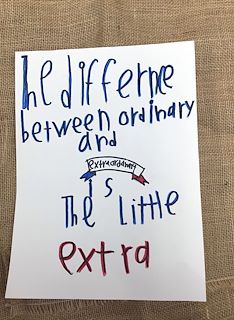 The differnce
between ordinary
and
extraordinary
is
The Little
extra